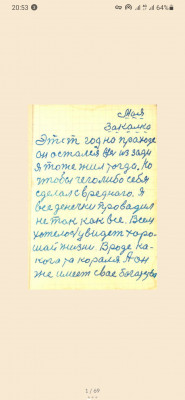 20:53
Моя
Закалка
Этот год на проходе
он остался
я тоже жил тогда. Ко
чтобы чего либо себя
сделал вредного. Я
все денечки проводил
не так как все. Всем
хотелось увидет харо-
шай жизни. Вроде ка-
кого та кораля А он
же имеет свае
1 / 69